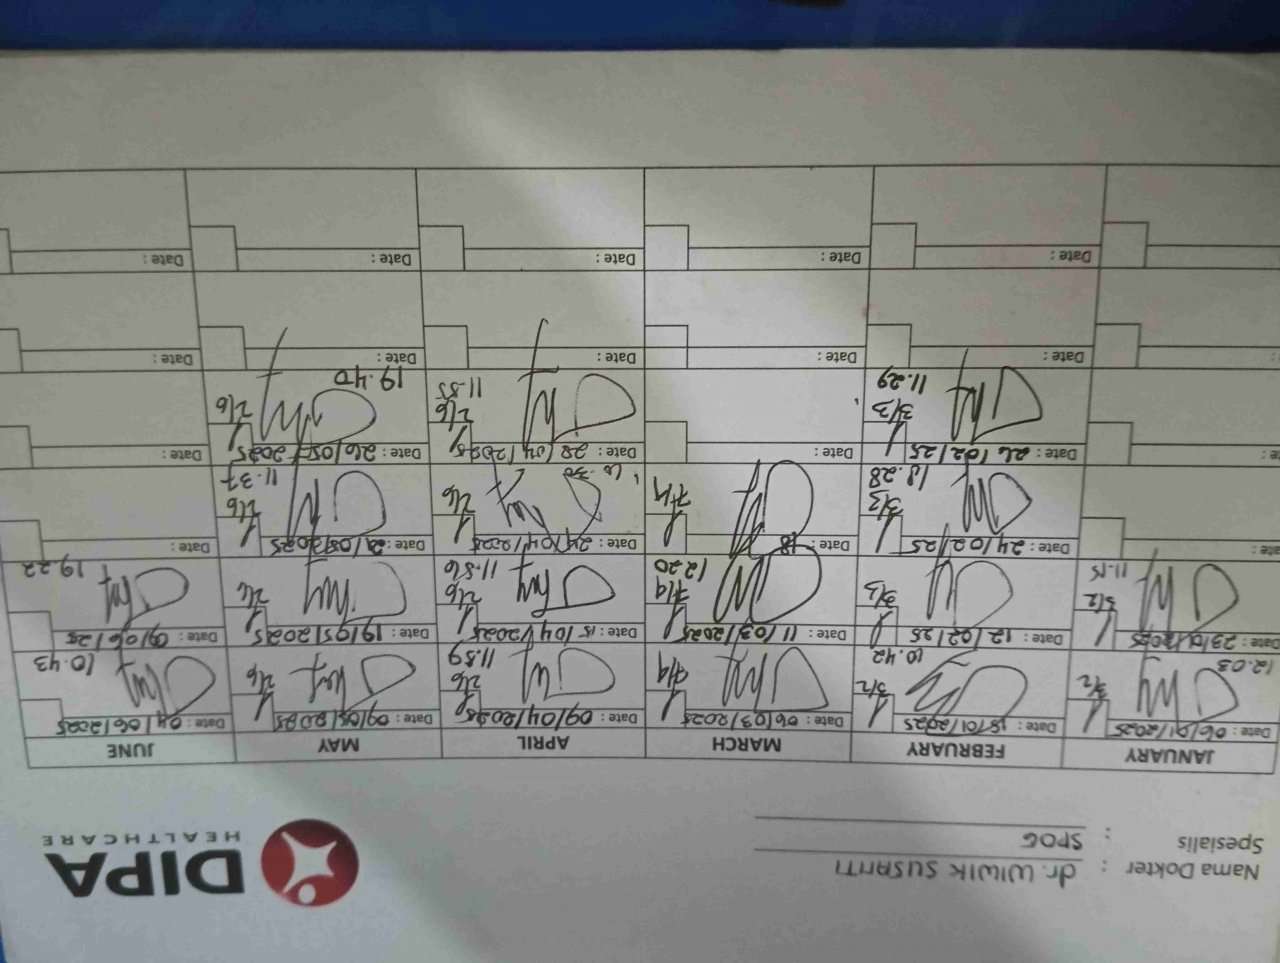 DIPA
HEALTHCARE
Nama Dokter : dr. WIWIK SUSANTI
Spesialis : SPOG
JANUARY FEBRUARY MARCH APRIL MAY JUNE
Date : 06/01/2025 Date : 15/01/2025 Date : 06/03/2025 Date : 09/04/2025 Date : 09/05/2025 Date : 04/06/2025
12.03 3/2 3/2 10.42 7/4 2/6 11.59 2/6 10.43
Date : 23/01/2025 Date : 12/02/25 Date : 11/03/2025 Date : 15/04/2025 Date : 19/05/2025 Date : 09/06/25
11.15 3/2 3/3 7/4 12.20 2/6 11.56 2/6 19.22
Date : Date : 24/02/25 Date : 18 Date : 24/04/2025 Date : 21/05/2025 Date :
3/3 18.28 7/4 2/6 2/6 11.37
Date : Date : 26/02/25 Date : Date : 28/04/2025 Date : 26/05/2025 Date :
3/3 11.29 2/6 11.55 2/6 19.40
Date : Date : Date : Date : Date :
Date : Date : Date : Date : Date :